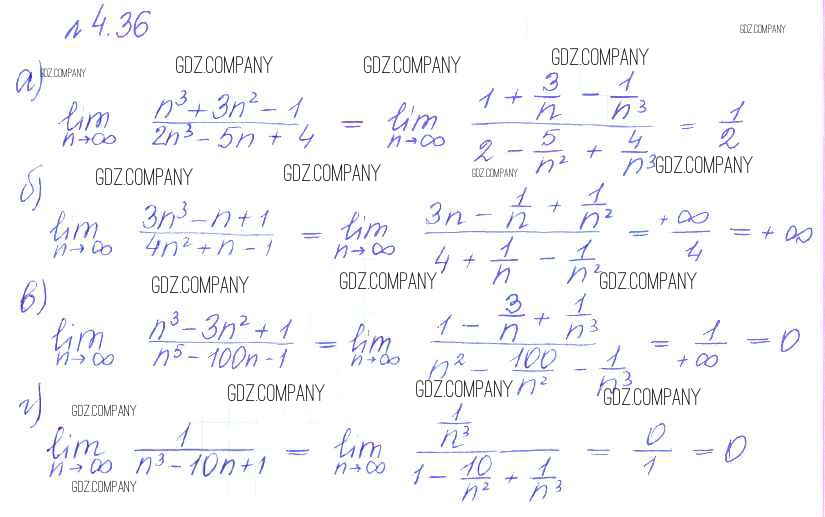 № 4.36
GDZ.COMPANY
а) GDZ.COMPANY GDZ.COMPANY GDZ.COMPANY GDZ.COMPANY
lim n→∞ (n³ + 3n² − 1)/(2n³ − 5n + 4) = lim n→∞ (1 + 3/n − 1/n³)/(2 − 5/n² + 4/n³) = 1/2
б) GDZ.COMPANY GDZ.COMPANY GDZ.COMPANY GDZ.COMPANY
lim n→∞ (3n³ − n + 1)/(4n² + n − 1) = lim n→∞ (3n − 1/n + 1/n²)/(4 + 1/n − 1/n²) = +∞/4 = +∞
в) GDZ.COMPANY GDZ.COMPANY GDZ.COMPANY
lim n→∞ (n³ − 3n² + 1)/(n⁵ − 100n − 1) = lim n→∞ (1 − 3/n + 1/n³)/(n² − 100/n² − 1/n³) = 1/+∞ = 0
г) GDZ.COMPANY GDZ.COMPANY GDZ.COMPANY GDZ.COMPANY
lim n→∞ 1/(n³ − 10n + 1) = lim n→∞ (1/n³)/(1 − 10/n² + 1/n³) = 0/1 = 0
GDZ.COMPANY